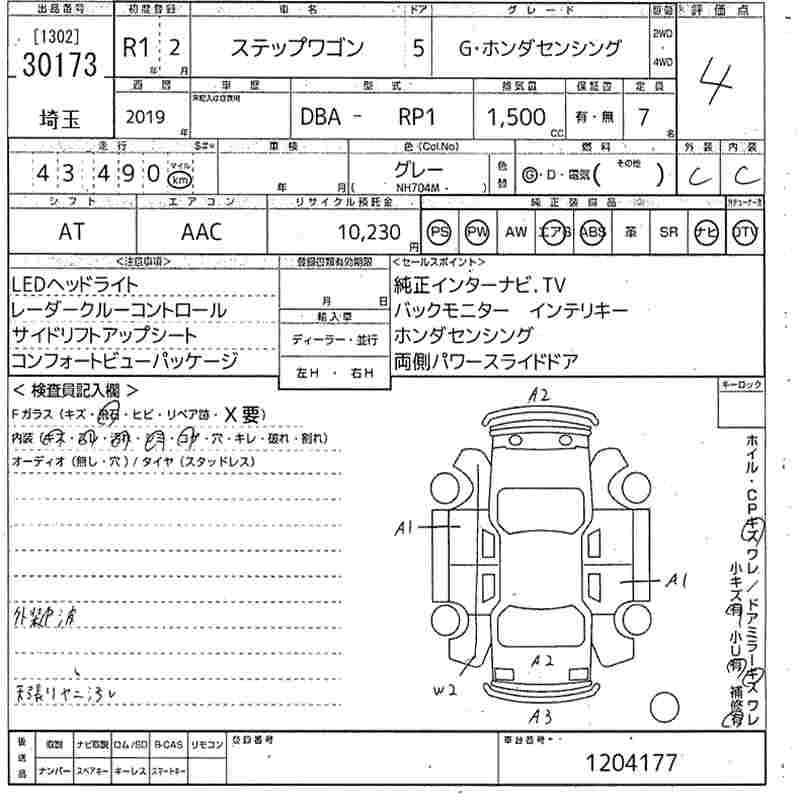 出品番号 初度登録 車名 ドア グレード 駆動 評価点
[1302] 30173 R1 2 年 月 ステップワゴン 5 G・ホンダセンシング 2WD・4WD 4
西暦 車歴 型式 排気量 保障書 定員
埼玉 2019 年 未記入は自家用 DBA - RP1 1,500 CC 有・無 7 名
走行 S#* 車検 色(Col.No) 燃料 外装 内装
43,490 マイル km 年 月 グレー ( NH704M・ ) 色替 G・D・電気( その他 ) C C
シフト エアコン リサイクル預託金 純正装備品
AT AAC 10,230 円 PS PW AW エアB ABS 革 SR ナビ DTV
<注意事項> 登録書類有効期限 <セールスポイント>
LEDヘッドライト 月 日 純正インターナビ.TV
レーダークルーコントロール 輸入車 バックモニター インテリキー
サイドリフトアップシート ディーラー・並行 ホンダセンシング
コンフォートビューパッケージ 左H ・ 右H 両側パワースライドドア
< 検査員記入欄 > キーロック
Fガラス (キズ・飛石・ヒビ・リペア跡・X要)
内装 (キズ・汚れ・コゲ・穴・キレ・破れ・割れ)
オーディオ (無し・穴) / タイヤ (スタッドレス)
A2
A1
A1
A2
W2
A3
ホイル・CPキズワレ/ドアミラーキズワレ
小キズ有 小U有 補修有
天張りヤニ汚レ
後送品 取説 ナビ取説 ロム/SD B-CAS リモコン 登録番号 車台番号
ナンバー スペアキー キーレス スマートキー 1204177